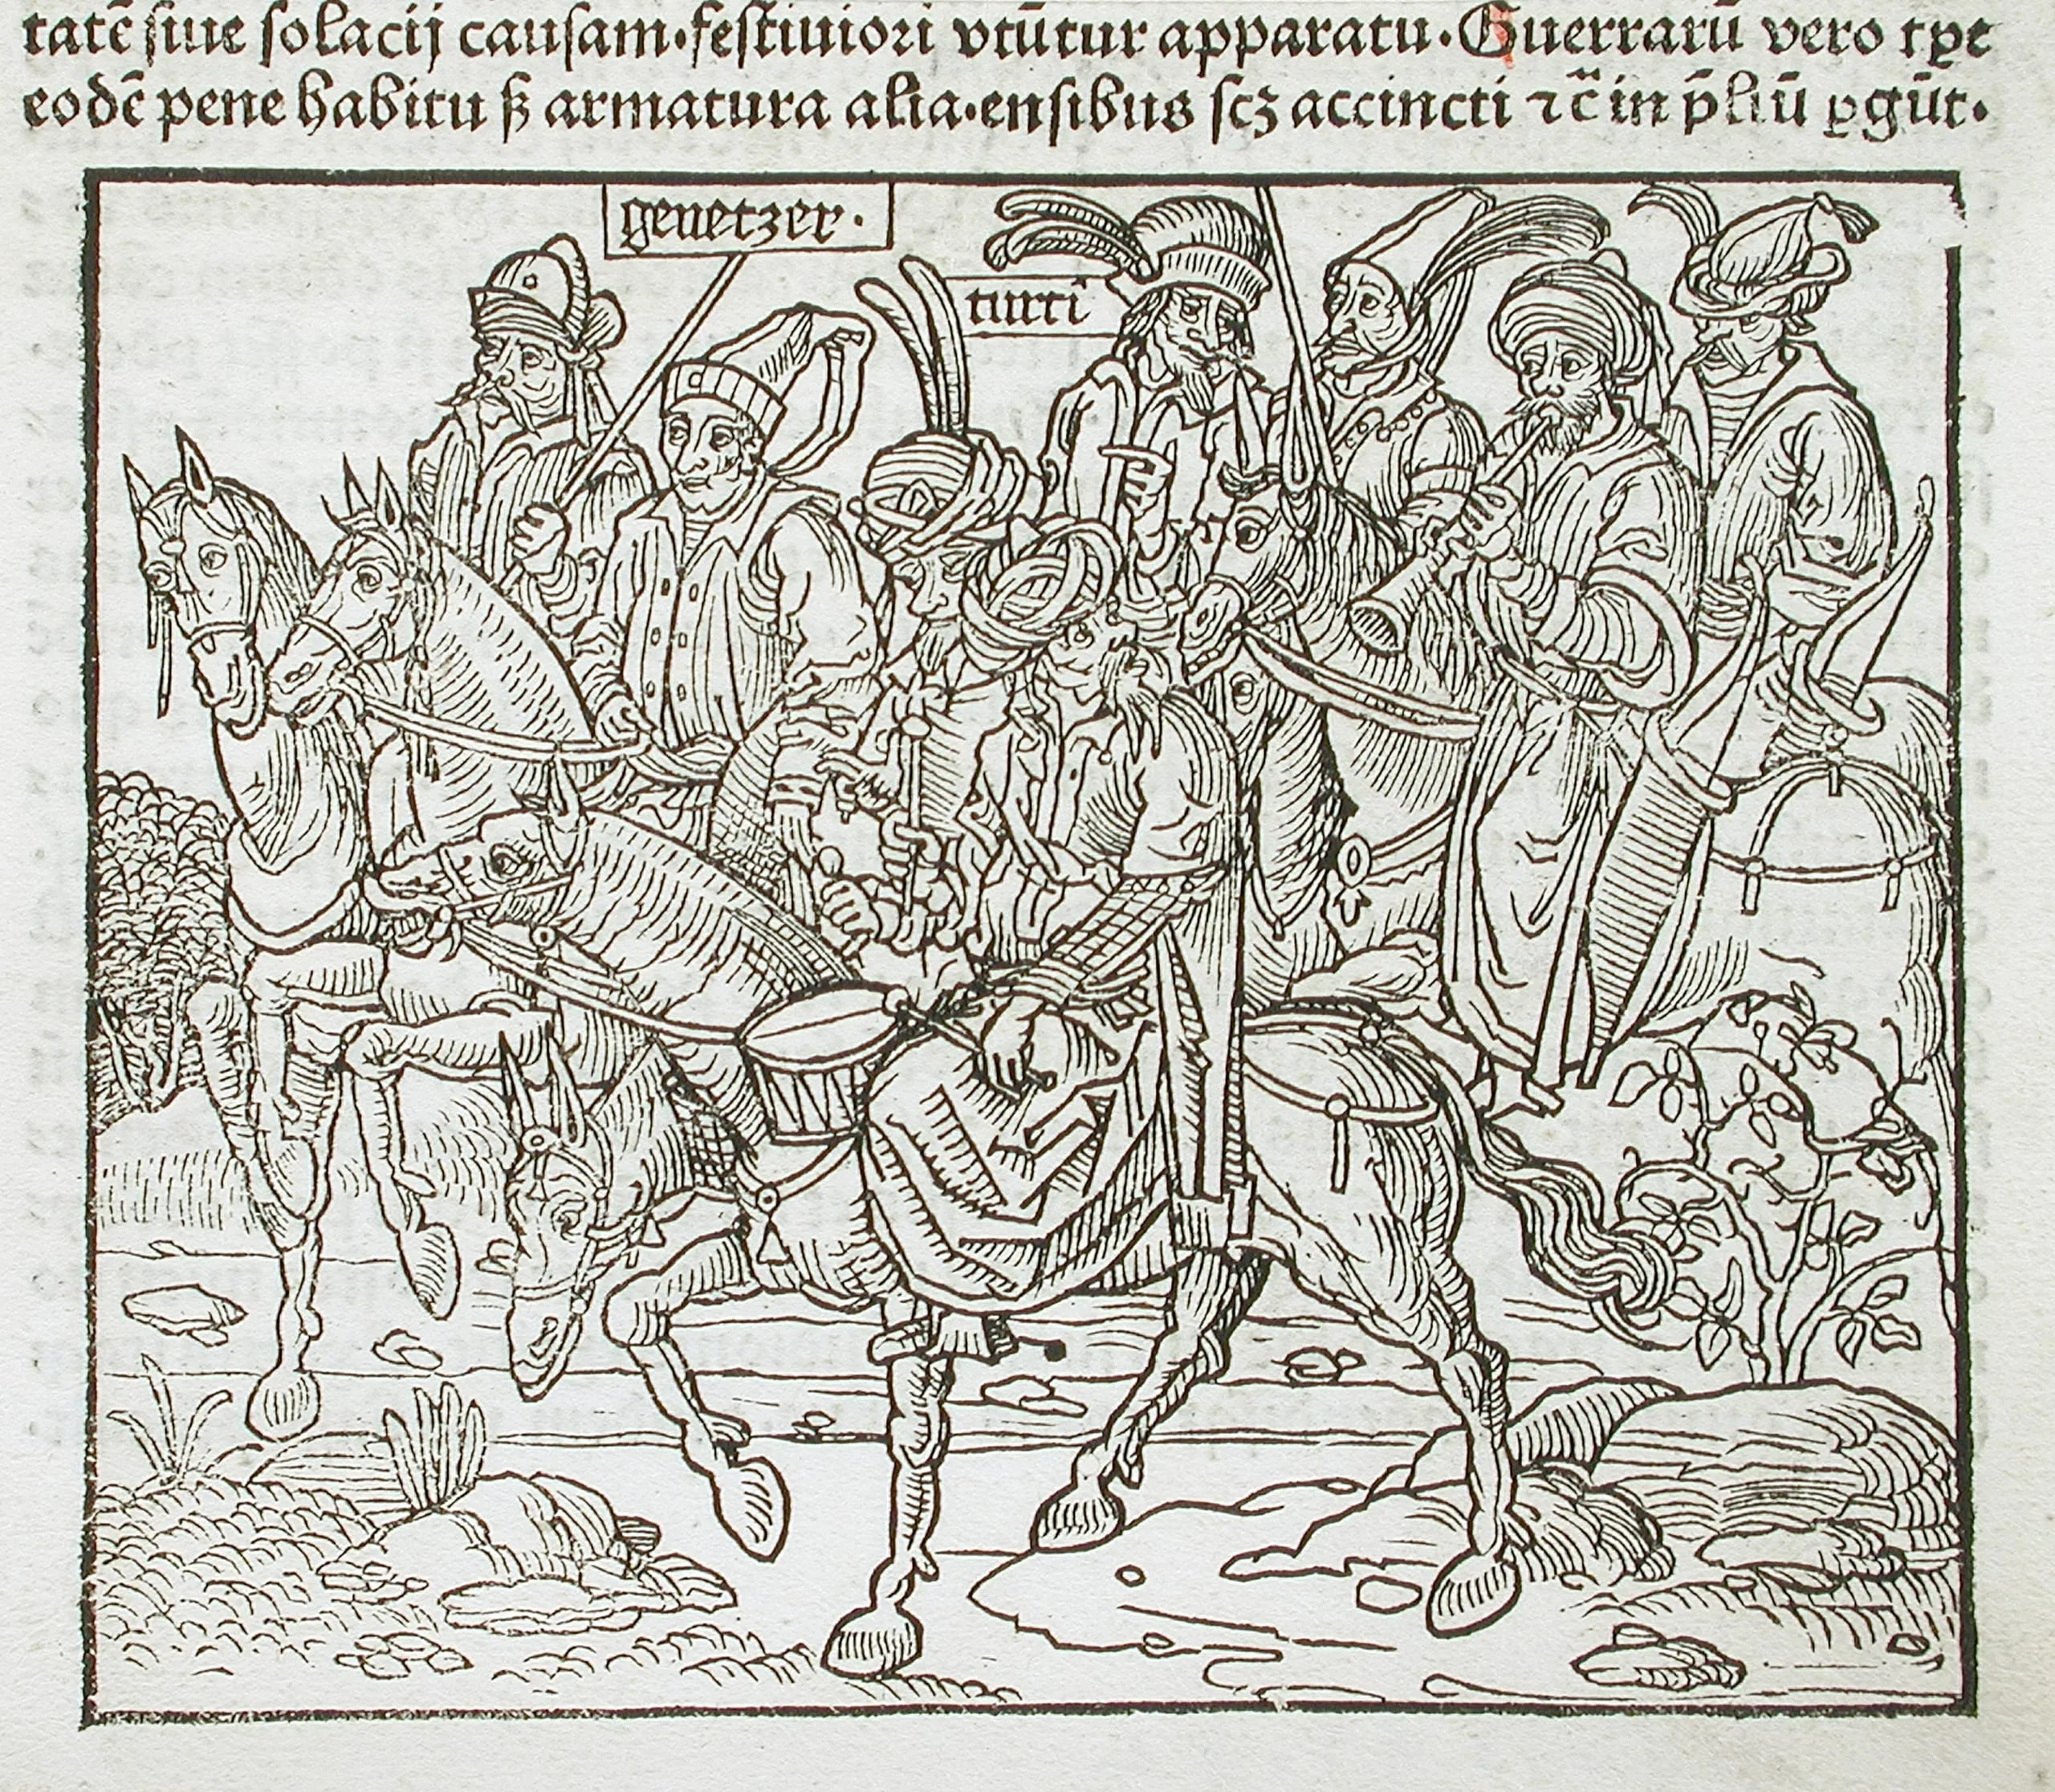 tatē siue solacij causam·festiuiori vtūtur apparatu·Guerrarū vero tꝑe
eodē pene habitu ẜ armatura alia·ensibus scꝫ accincti ⁊c̄ in p̄liū ꝑgūt·
genetzer·
turci